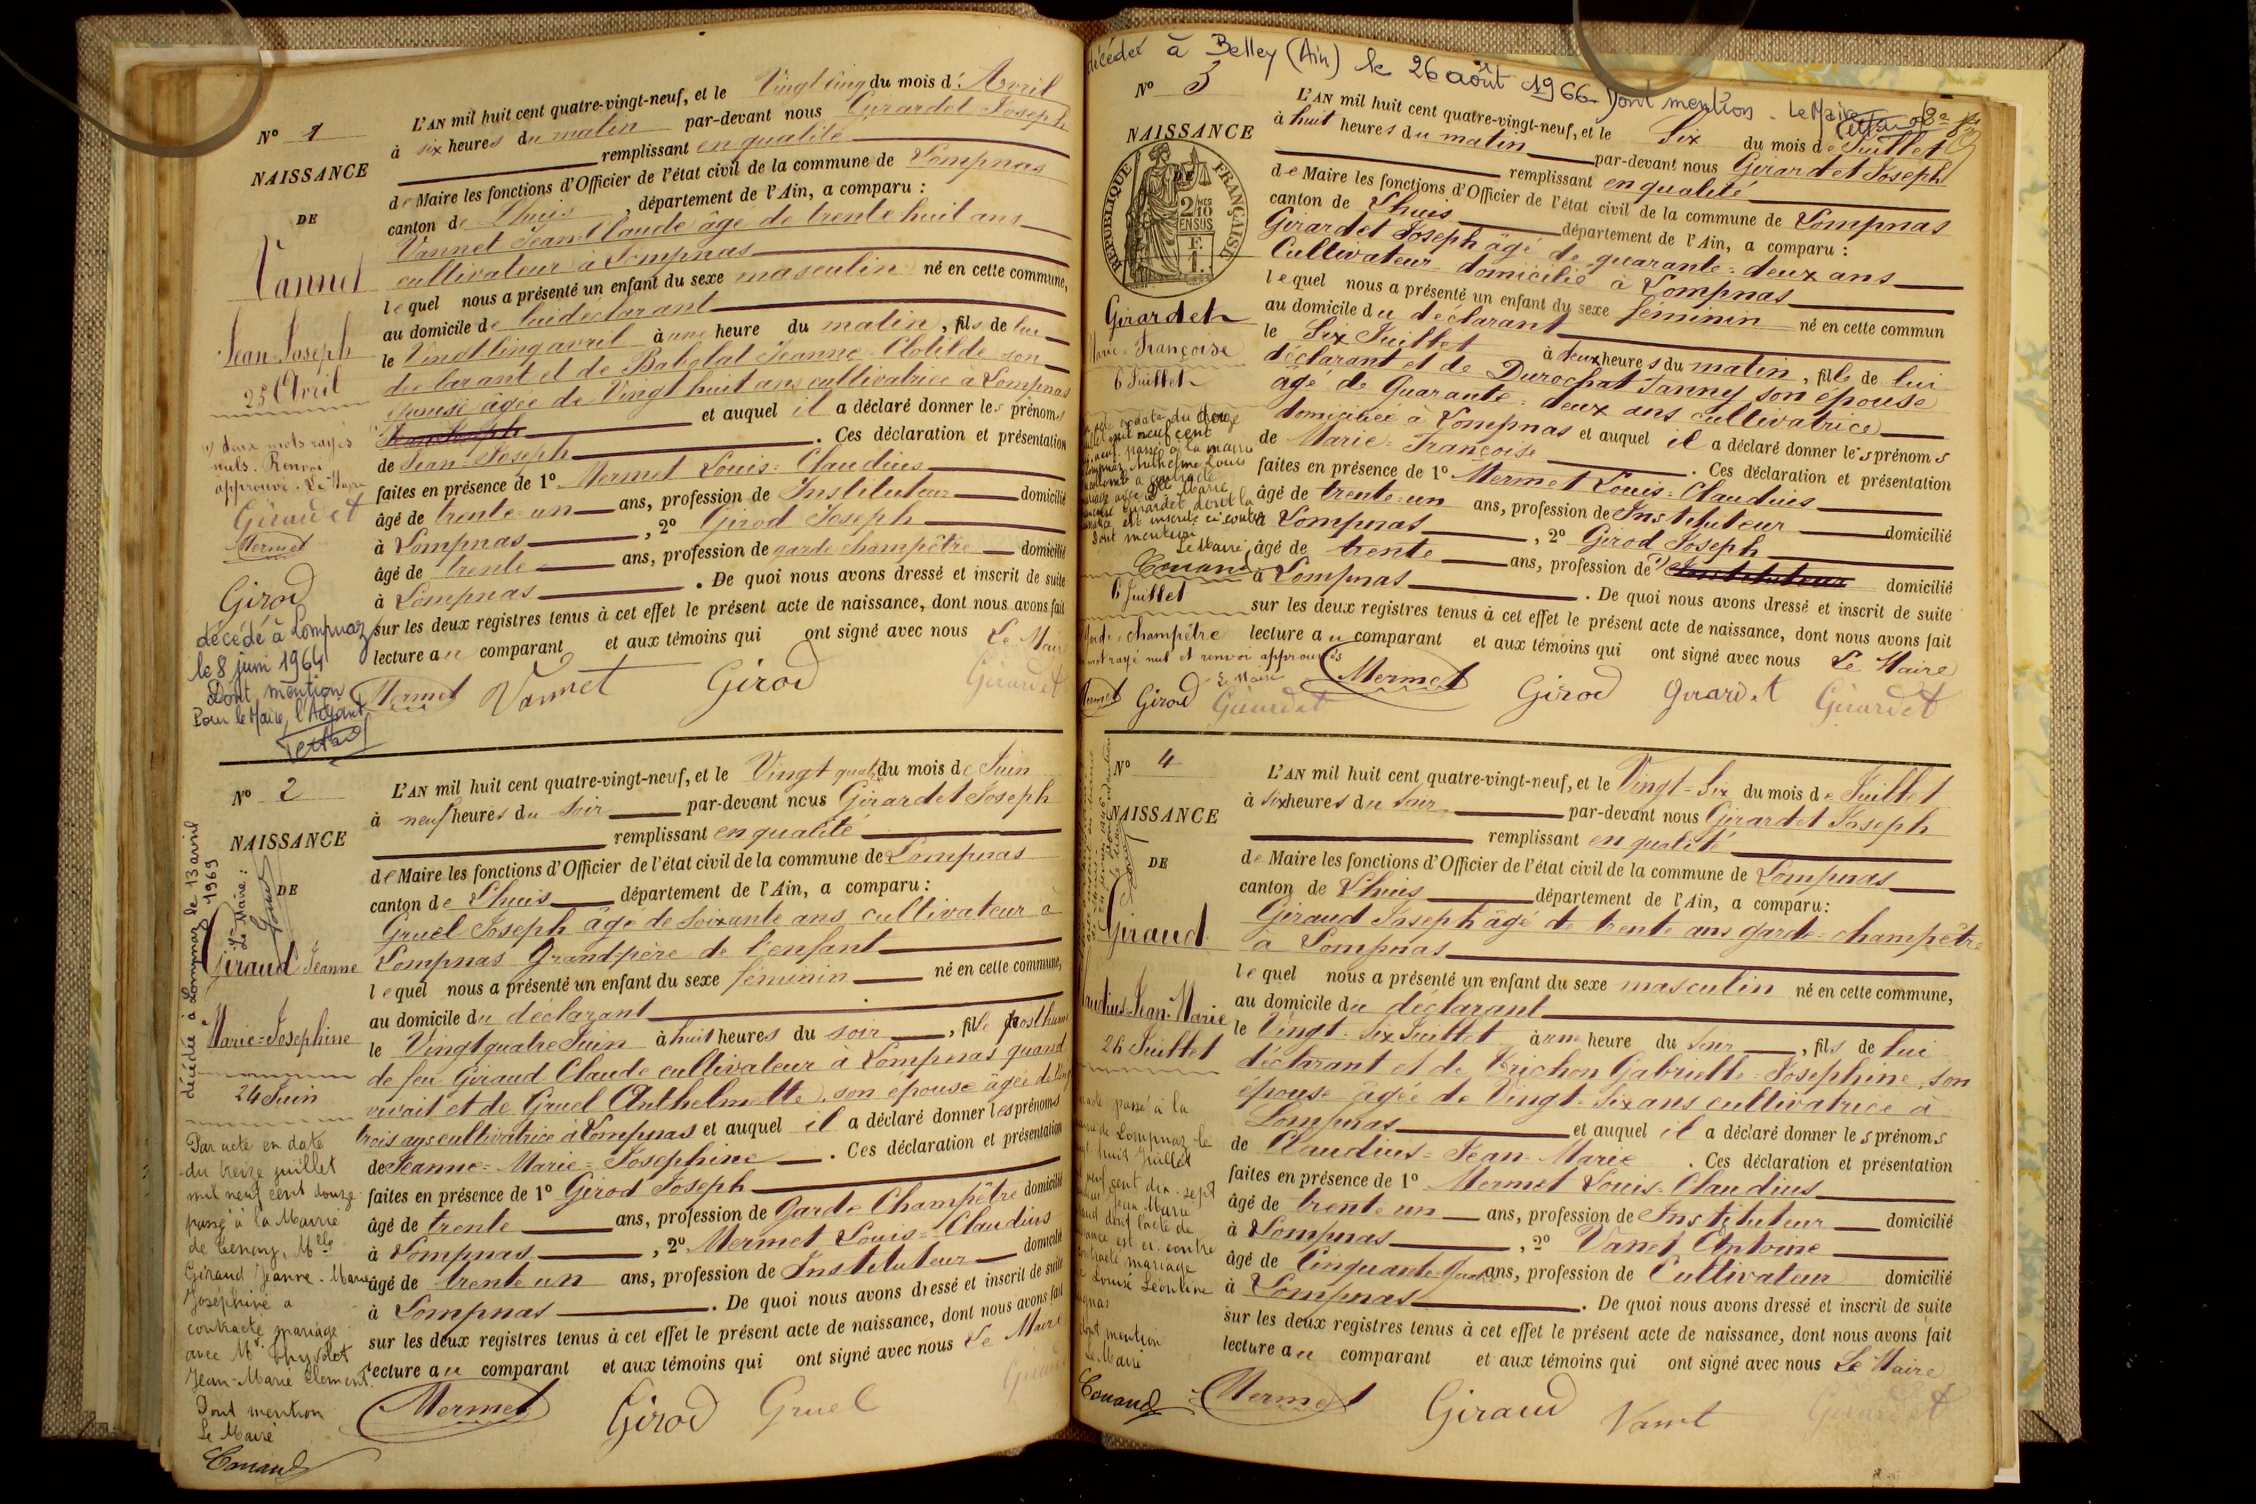 Nº 1
NAISSANCE
DE
Vannet
Jean-Joseph
25 Avril
deux mots rayés
nuls. Renvoi
approuvé. Le Maire
Girardet
Mermet
Girod
décédé à Lompnaz
le 8 juin 1964
Dont mention
Pour le Maire, l'Adjoint
L'AN mil huit cent quatre-vingt-neuf, et le Vingt cinq du mois d'Avril
à six heures du matin par-devant nous Girardet Joseph
remplissant en qualité
de Maire les fonctions d'Officier de l'état civil de la commune de Lompnas
canton de Lhuis, département de l'Ain, a comparu :
Vannet Jean-Claude âgé de trente huit ans
cultivateur à Lompnas
lequel nous a présenté un enfant du sexe masculin né en cette commune,
au domicile de lui déclarant
le Vingt cinq avril à une heure du matin, fils de lui
déclarant et de Babolat Jeanne-Clotilde son
épouse âgée de Vingt huit ans cultivatrice à Lompnas
et auquel il a déclaré donner les prénoms
de Jean-Joseph. Ces déclaration et présentation
faites en présence de 1º Mermet Louis-Claudius
âgé de trente-un ans, profession de Instituteur domicilié
à Lompnas, 2º Girod Joseph
âgé de trente ans, profession de garde champêtre domicilié
à Lompnas. De quoi nous avons dressé et inscrit de suite
sur les deux registres tenus à cet effet le présent acte de naissance, dont nous avons fait
lecture au comparant et aux témoins qui ont signé avec nous Le Maire
Mermet Vannet Girod Girardet
Nº 2
NAISSANCE
DE
Giraud Jeanne
Marie=Josephine
24 Juin
décédée à Lompnaz le 13 avril
1969
Le Maire :
Par acte en date
du treize juillet
mil neuf cent douze
passé à la Mairie
de Tenay, Melle
Giraud Jeanne-Marie
Joséphine a
contracté mariage
avec Mr
Jean-Marie Clément.
Dont mention
Le Maire
Couand
L'AN mil huit cent quatre-vingt-neuf, et le Vingt quatre du mois de Juin
à neuf heures du soir par-devant nous Girardet Joseph
remplissant en qualité
de Maire les fonctions d'Officier de l'état civil de la commune de Lompnas
canton de Lhuis département de l'Ain, a comparu :
Gruel Joseph âgé de soixante ans cultivateur à
Lompnas Grand père de l'enfant
lequel nous a présenté un enfant du sexe féminin né en cette commune,
au domicile du déclarant
le Vingt quatre Juin à huit heures du soir, fille posthume
de feu Giraud Claude cultivateur à Lompnas quand
vivait et de Gruel Anthelmette, son épouse âgée de Vingt
trois ans cultivatrice à Lompnas et auquel il a déclaré donner les prénoms
de Jeanne=Marie=Josephine. Ces déclaration et présentation
faites en présence de 1º Girod Joseph
âgé de trente ans, profession de Garde Champêtre domicilié
à Lompnas, 2º Mermet Louis=Claudius
âgé de trente un ans, profession de Instituteur domicilié
à Lompnas. De quoi nous avons dressé et inscrit de suite
sur les deux registres tenus à cet effet le présent acte de naissance, dont nous avons fait
lecture au comparant et aux témoins qui ont signé avec nous Le Maire
Mermet Girod Gruel Girardet
décédée à Belley (Ain) le 26 août 1966. Dont mention. Le Maire
Nº 3
NAISSANCE
RÉPUBLIQUE FRANÇAISE
Girardet
Marie=Françoise
6 Juillet
Le Maire
Couand
6 Juillet
Garde champêtre
mot rayé nul et renvoi approuvés
Le Maire
Mermet Girod Girardet
L'AN mil huit cent quatre-vingt-neuf, et le Six du mois de Juillet
à huit heures du matin par-devant nous Girardet Joseph
remplissant en qualité
de Maire les fonctions d'Officier de l'état civil de la commune de Lompnas
canton de Lhuis département de l'Ain, a comparu :
Girardet Joseph âgé de quarante=deux ans
Cultivateur domicilié à Lompnas
lequel nous a présenté un enfant du sexe féminin né en cette commun
au domicile du déclarant
le Six Juillet à deux heures du matin, fille de lui
déclarant et de Durochat Fanny son épouse
âgé de Quarante=deux ans cultivatrice
domiciliée à Lompnas et auquel il a déclaré donner les prénoms
de Marie=Françoise. Ces déclaration et présentation
faites en présence de 1º Mermet Louis=Claudius
âgé de trente=un ans, profession de Instituteur domicilié
à Lompnas, 2º Girod Joseph
âgé de trente ans, profession de Instituteur domicilié
à Lompnas. De quoi nous avons dressé et inscrit de suite
sur les deux registres tenus à cet effet le présent acte de naissance, dont nous avons fait
lecture au comparant et aux témoins qui ont signé avec nous Le Maire
Mermet Girod Girardet Girardet
Nº 4
NAISSANCE
DE
Giraud
Claudius-Jean-Marie
26 Juillet
passé à la
de Lompnaz le
huit Juillet
neuf cent dix-sept
Jean Marie
dont l'acte de
est ci-contre
contracté mariage
Louise Léontine
Dont mention
Le Maire
Couand
L'AN mil huit cent quatre-vingt-neuf, et le Vingt-Six du mois de Juillet
à six heures du soir par-devant nous Girardet Joseph
remplissant en qualité
de Maire les fonctions d'Officier de l'état civil de la commune de Lompnas
canton de Lhuis département de l'Ain, a comparu :
Giraud Joseph âgé de trente ans garde=champêtre
à Lompnas
lequel nous a présenté un enfant du sexe masculin né en cette commune,
au domicile du déclarant
le Vingt-Six Juillet à une heure du soir, fils de lui
déclarant et de Trichon Gabrielle-Josephine, son
épouse âgée de Vingt-Six ans cultivatrice à
Lompnas et auquel il a déclaré donner les prénoms
de Claudius=Jean-Marie. Ces déclaration et présentation
faites en présence de 1º Mermet Louis=Claudius
âgé de trente un ans, profession de Instituteur domicilié
à Lompnas, 2º Vanet Antoine
âgé de Cinquante-Quatre ans, profession de Cultivateur domicilié
à Lompnas. De quoi nous avons dressé et inscrit de suite
sur les deux registres tenus à cet effet le présent acte de naissance, dont nous avons fait
lecture au comparant et aux témoins qui ont signé avec nous Le Maire
Mermet Giraud Vanet Girardet